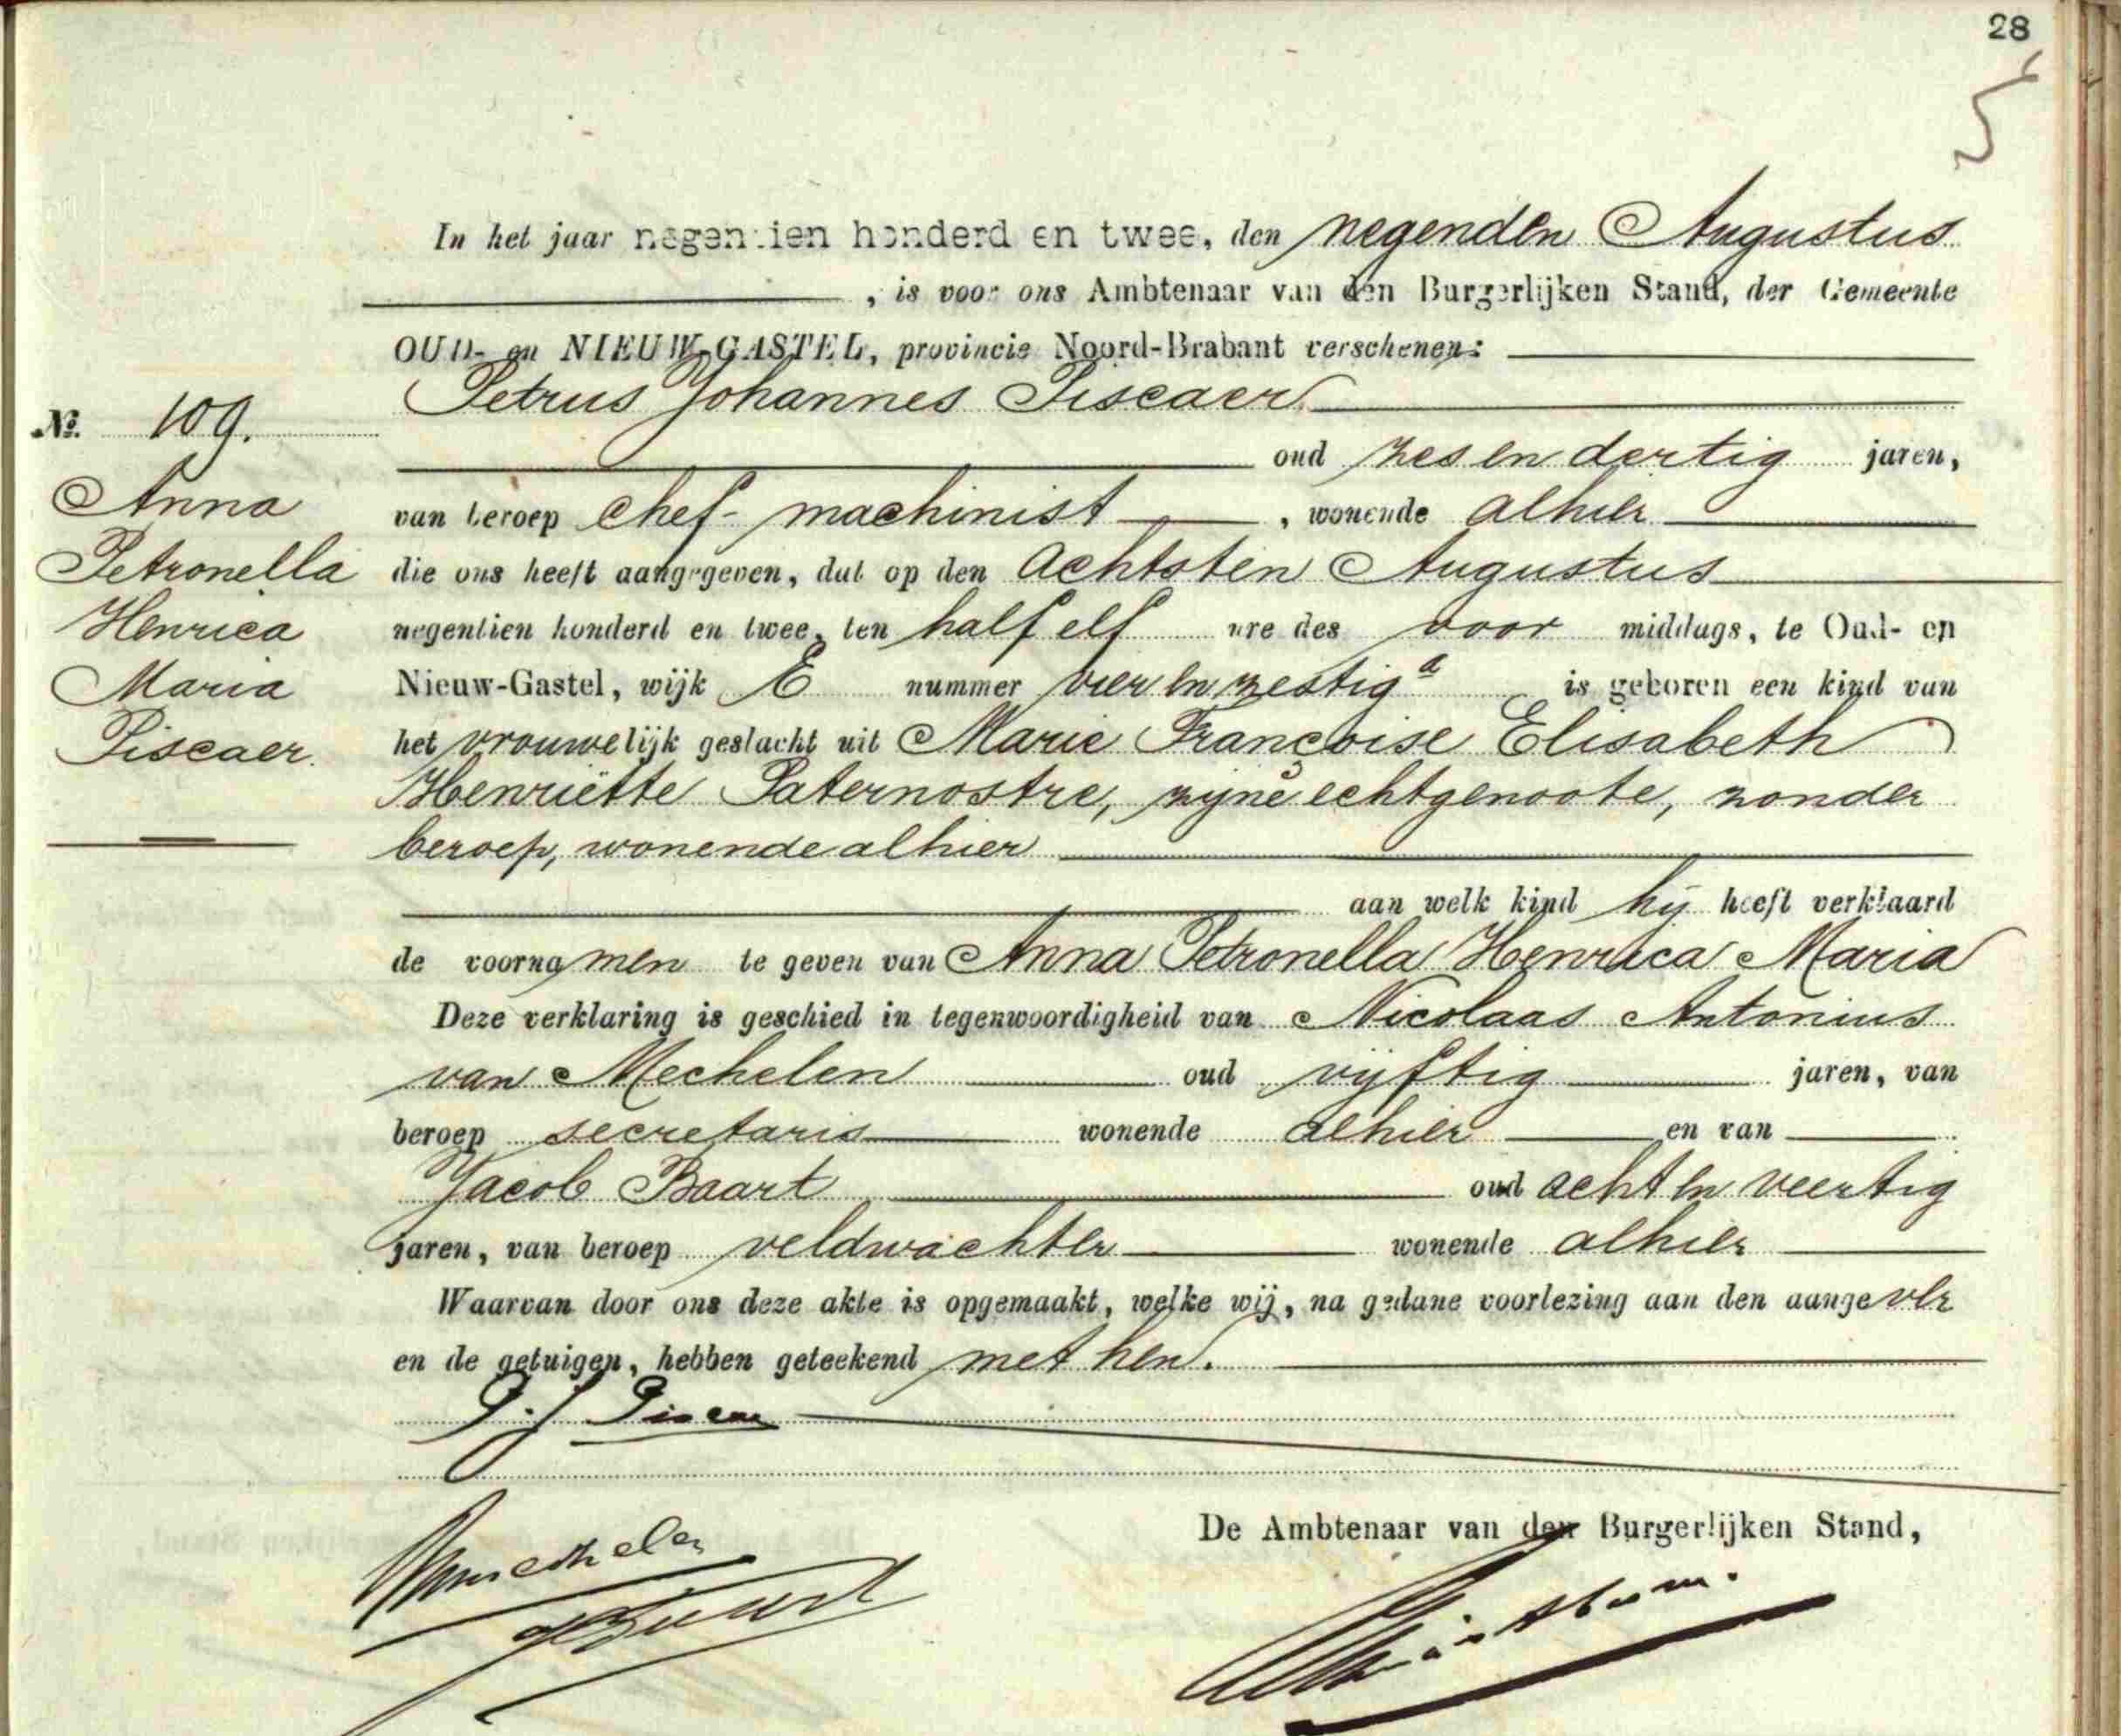 28
5
In het jaar negentien honderd en twee, den negenden Augustus
, is voor ons Ambtenaar van den Burgerlijken Stand, der Gemeente
OUD- en NIEUW-GASTEL, provincie Noord-Brabant verschenen:
Petrus Johannes Piscaer
No. 109.
oud zes en dertig jaren,
Anna
Petronella
Henrica
Maria
Piscaer.
van beroep chef-machinist, wonende alhier
die ons heeft aangegeven, dat op den achtsten Augustus
negentien honderd en twee, ten half elf ure des voor middags, te Oud- en
Nieuw-Gastel, wijk E nummer vier en zestig a is geboren een kind van
het vrouwelijk geslacht uit Marie Françoise Elisabeth
Henriëtte Paternostre, zijne echtgenoote, zonder
beroep, wonende alhier
aan welk kind hij heeft verklaard
de voornamen te geven van Anna Petronella Henrica Maria
Deze verklaring is geschied in tegenwoordigheid van Nicolaas Antonius
van Mechelen oud vijftig jaren, van
beroep secretaris wonende alhier en van
Jacob Baart oud acht en veertig
jaren, van beroep veldwachter wonende alhier
Waarvan door ons deze akte is opgemaakt, welke wij, na gedane voorlezing aan den aangever
en de getuigen, hebben geteekend met hen.
P. J. Piscaer
De Ambtenaar van den Burgerlijken Stand,